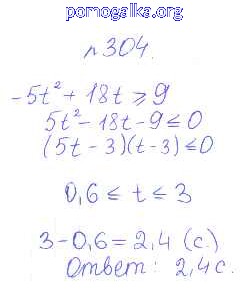 pomogalka.org
№304.
-5t² + 18t ⩾ 9
5t² - 18t - 9 ≤ 0
(5t - 3)(t - 3) ≤ 0
0,6 ≤ t ≤ 3
3 - 0,6 = 2,4 (с.)
Ответ: 2,4с.